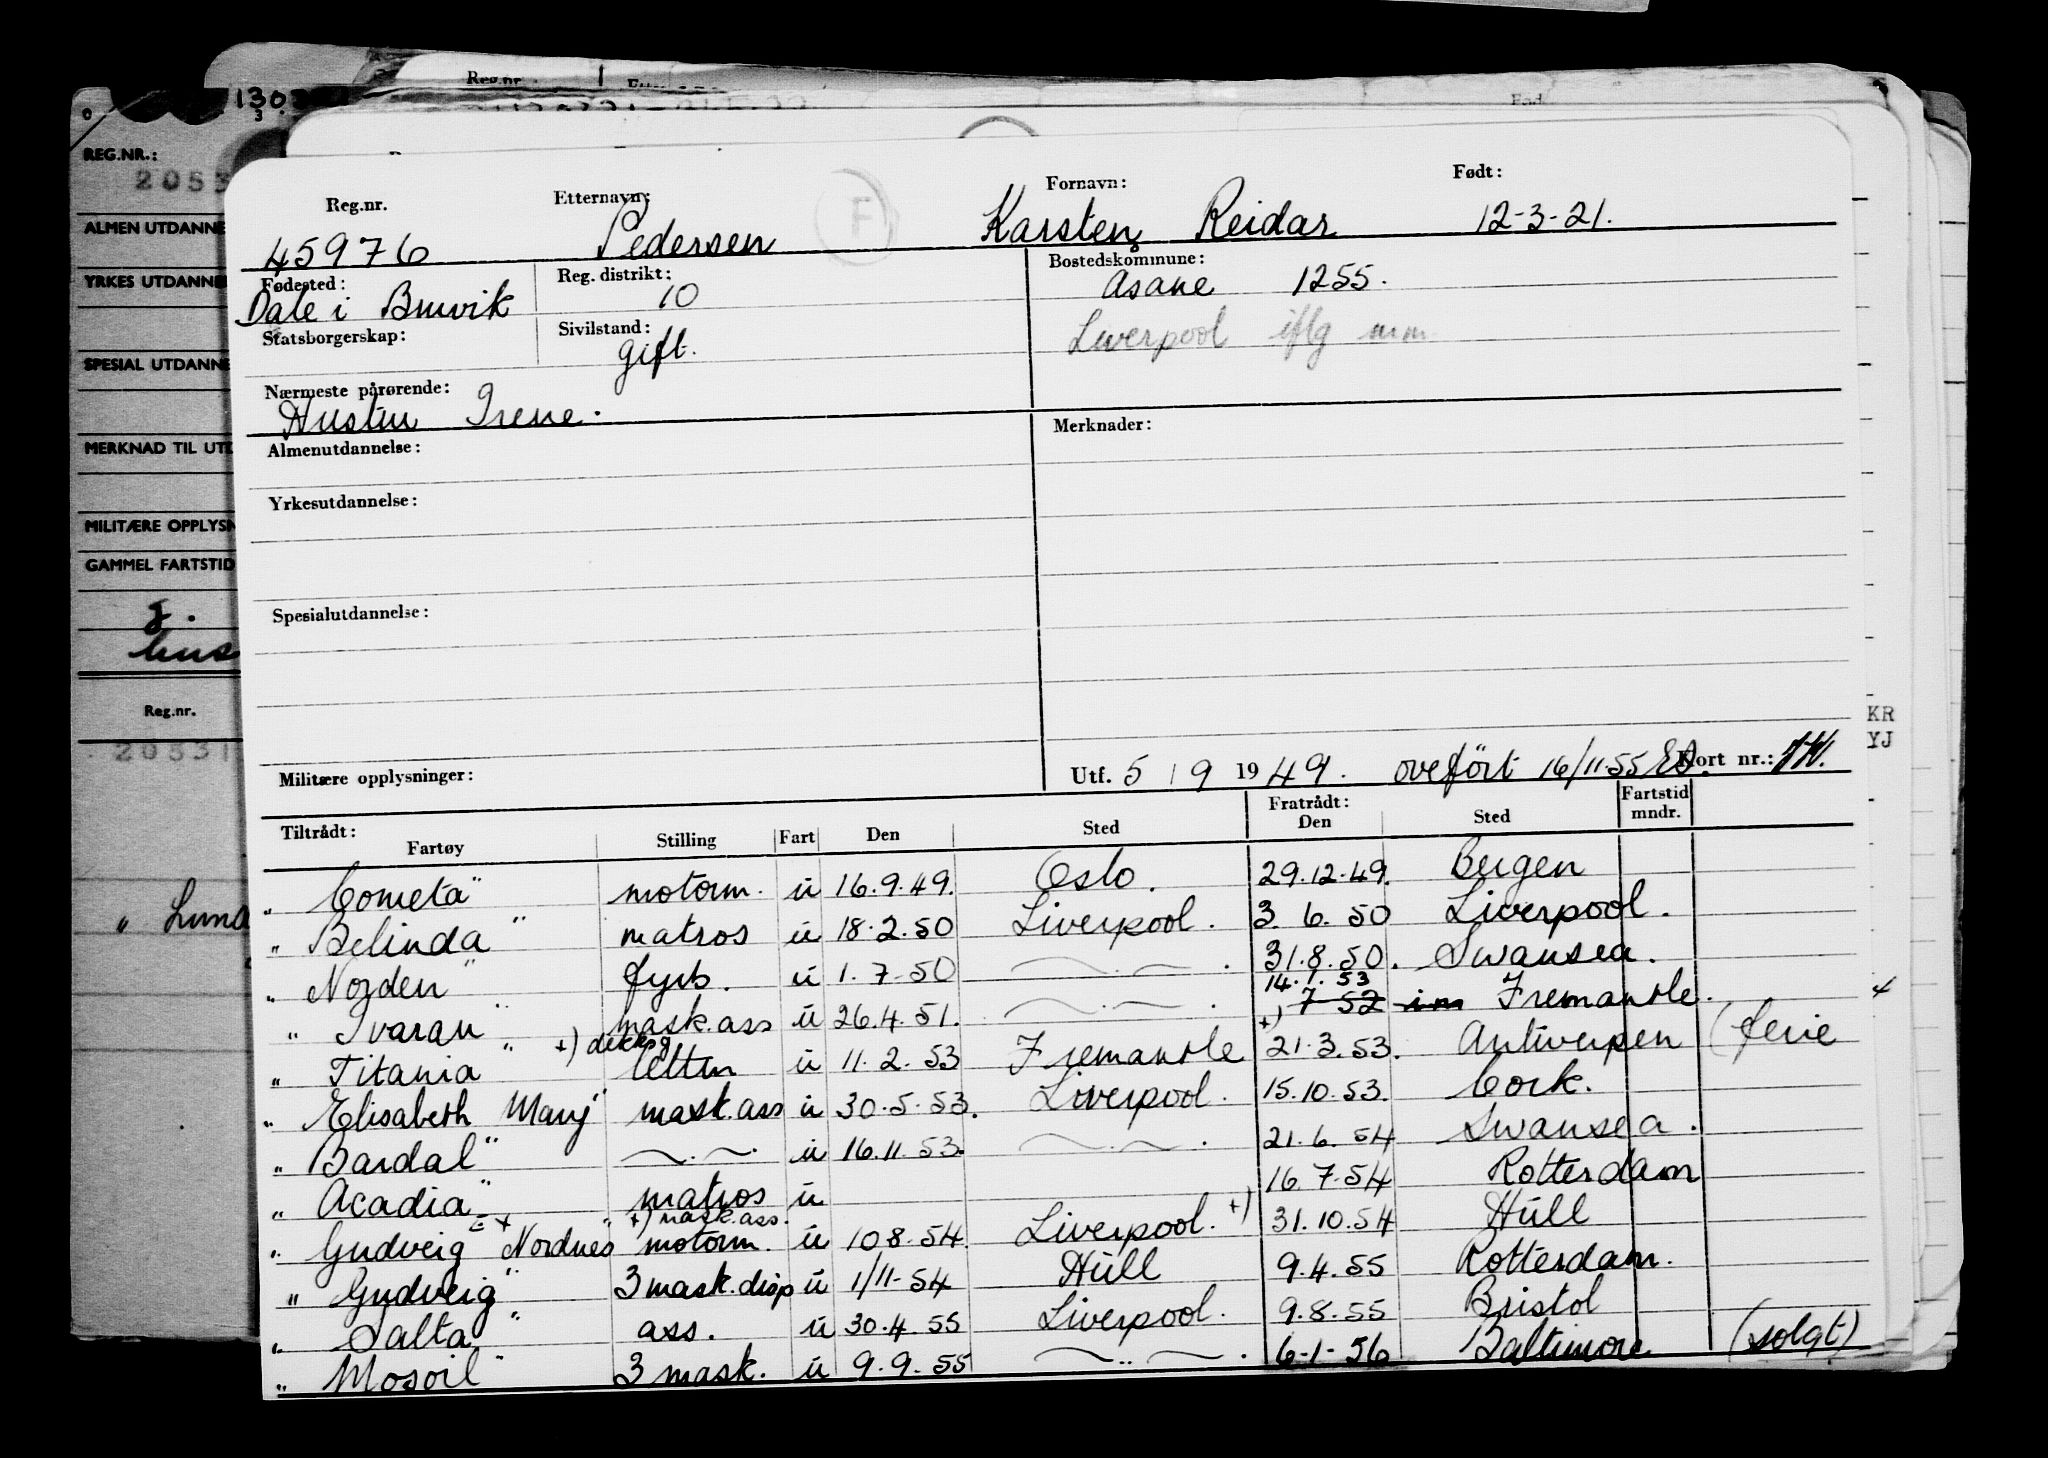 Reg.nr.
130
3
REG.NR.:
2053
ALMEN UTDANNE
YRKES UTDANNE
SPECIAL UTDANNE
MERKNAD TIL UTD
MILITÆRE OPPLYSN
GAMMEL FARTSTID
Reg.nr.
20531
„ Luna
KR
YJ
Reg.nr. Etternavn: Fornavn: Født:
45976 Pedersen F Karsten Reidar 12-3-21.
Fødested: Reg. distrikt: Bostedskommune:
Dale i Bruvik 10 Åsane 1255.
Statsborgerskap: Sivilstand:
gift. Liverpool iflg mm.
Nærmeste pårørende:
Hustru Irene.
Almenutdannelse: Merknader:
Yrkesutdannelse:
Spesialutdannelse:
Militære opplysninger: Utf. 5 / 9 1949. overført 16/11-55 Kort nr.:
Tiltrådt: Fratrådt: Fartstid
Fartøy Stilling Fart Den Sted Den Sted mndr.
„ Cometa" motorm. u 16.9.49. Oslo. 29.12.49. Bergen
„ Belinda" matros u 18.2.50 Liverpool. 3.6.50 Liverpool.
„ Norden" fyrb. u 1.7-50 —.—. 31.8.50. Swansea.
14.1.53
„ Ivaran" mask.ass u 26.4.51. —.—. 7-52 im Fremantle.
„ Titania" +) dekksg lettm u 11.2.53 Fremantle +) 21.3.53. Antwerpen (ferie
„ Elisabeth Mary" mask.ass u 30.5.53. Liverpool. 15.10.53. Cork.
„ Bardal" —.—. u 16.11.53. —.—. 21.6.54 Swansea.
„ Acadia" matros u 16.7.54 Rotterdam
+) mask.ass.
„ Gudveig + Nordnes" motorm. u 10.8.54. Liverpool. +) 31.10.54 Hull
„ Gudveig" 3 mask.disp u 1/11-54 Hull 9.4.55 Rotterdam.
„ Salta" ass. u 30.4.55 Liverpool. 9.8.55 Bristol
„ Mosoil" 3 mask. u 9.9.55 —..—. 6-1-56 Baltimore (solgt)